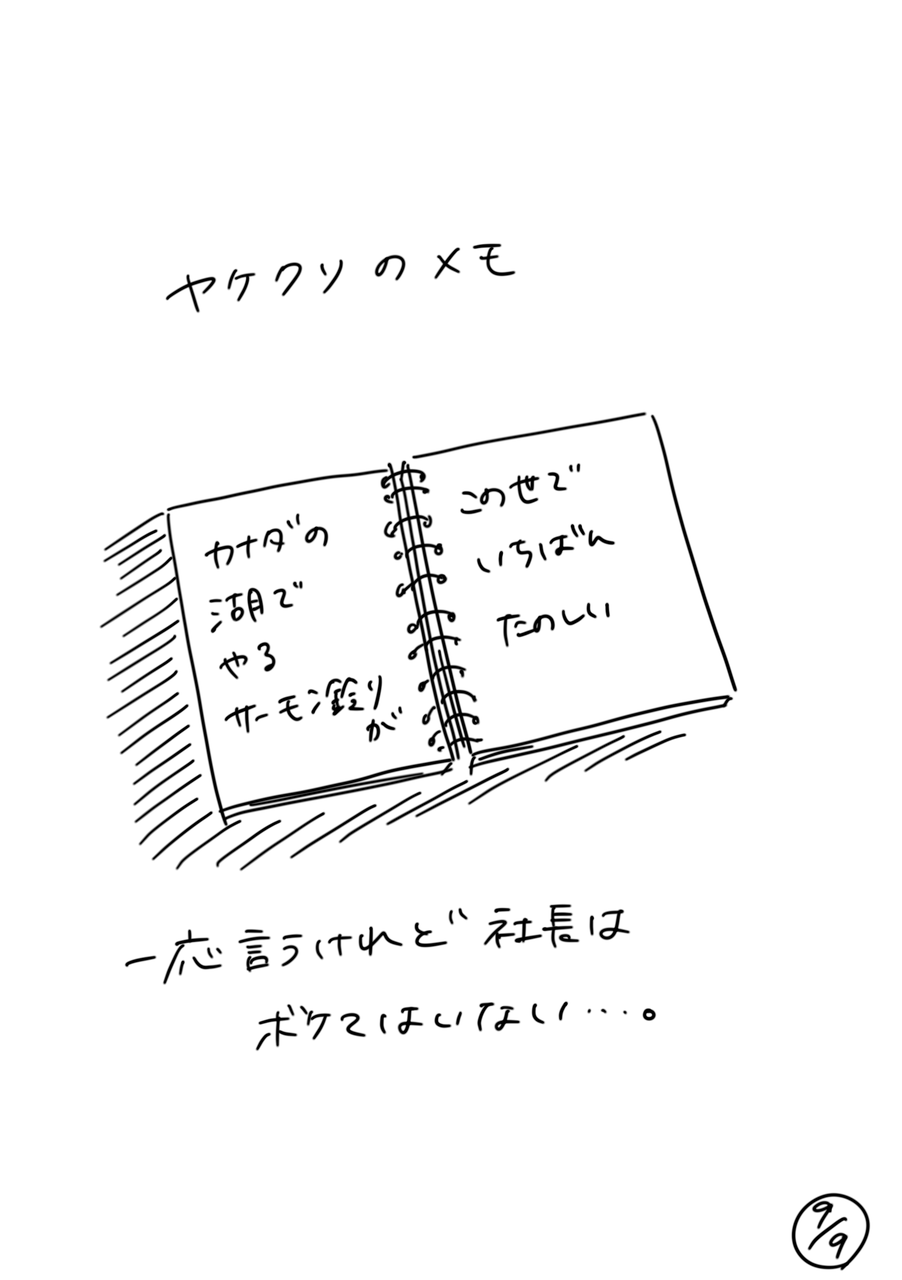 ヤケクソのメモ
カナダの
湖で
やる
サーモン釣り
が
このせで
いちばん
たのしい
一応言うけれど社長は
ボケてはいない…。
9/9